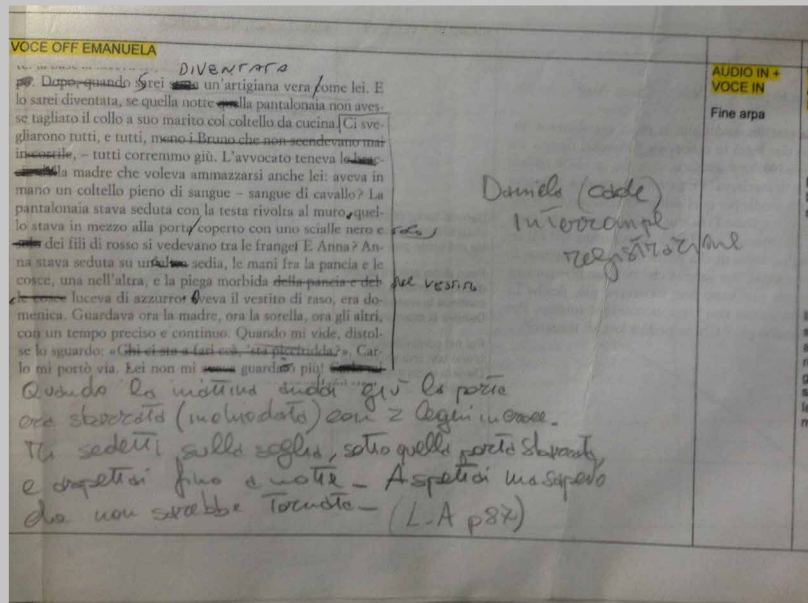 VOCE OFF EMANUELA
DIVENTATA
Dopo, quando sarei un'artigiana vera come lei. E
lo sarei diventata, se quella notte quella pantalonaia non aves-
se tagliato il collo a suo marito col coltello da cucina. Ci sve-
gliarono tutti, e tutti, meno i Bruno che non scendevano mai
in cortile, – tutti corremmo giù. L'avvocato teneva le brac-
alla madre che voleva ammazzarsi anche lei: aveva in
mano un coltello pieno di sangue – sangue di cavallo? La
pantalonaia stava seduta con la testa rivolta al muro, quel-
lo stava in mezzo alla porta coperto con uno scialle nero e solo
dei fili di rosso si vedevano tra le frange. E Anna? An-
na stava seduta su sedia, le mani fra la pancia e le
cosce, una nell'altra, e la piega morbida della pancia e del- del vestito
le cosce luceva di azzurro. Aveva il vestito di raso, era do-
menica. Guardava ora la madre, ora la sorella, ora gli altri,
con un tempo preciso e continuo. Quando mi vide, distol-
se lo sguardo: «Ghi ci sta a fari ccà, 'sta picciridda?». Car-
lo mi portò via. Lei non mi guardò più!
Quando la mattina andai giù la porta
era sbarrata (inchiodata) con 2 legni in croce.
Mi sedetti sulla soglia, sotto quella porta sbarrata,
e aspettai fino a notte – Aspettai ma sapevo
che non sarebbe tornata – (L.A p87)
Daniela (cade)
interrompe
registrazione
AUDIO IN +
VOCE IN
Fine arpa